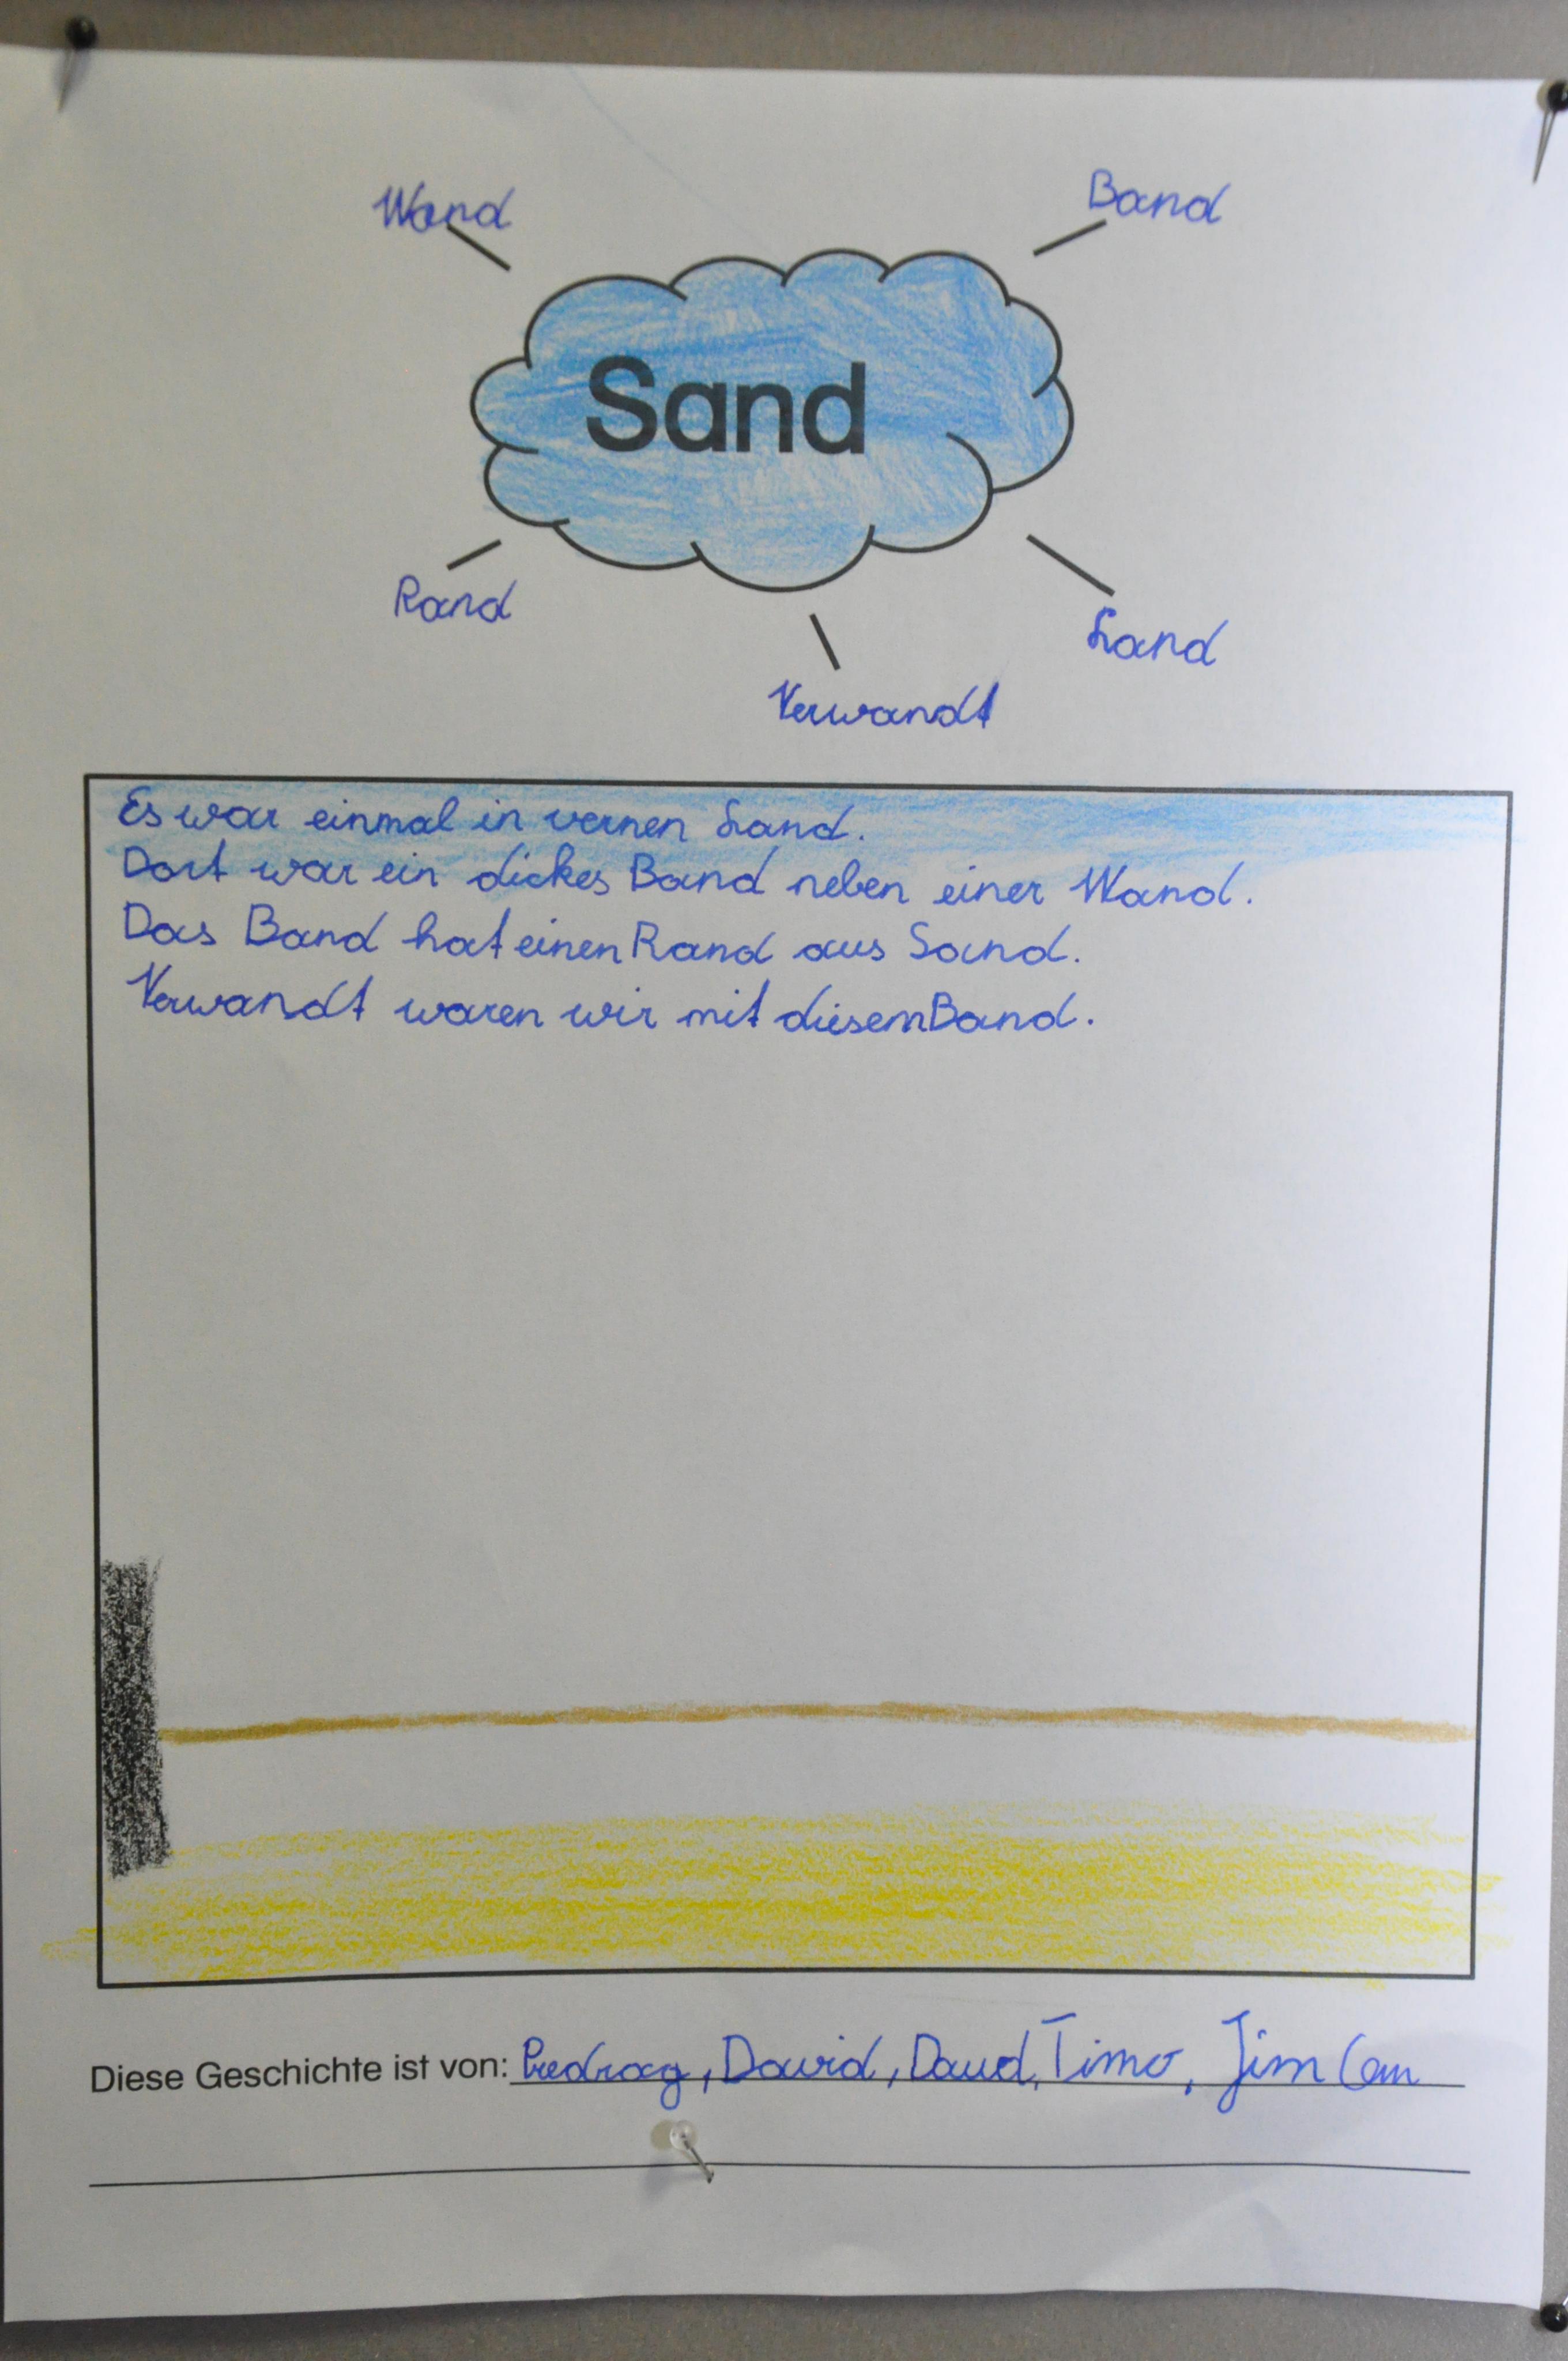 Wand
Band
Sand
Rand
Land
Verwandt
Es war einmal in vernen Land.
Dort war ein dickes Band neben einer Wand.
Das Band hat einen Rand aus Sand.
Verwandt waren wir mit diesem Band.
Diese Geschichte ist von: Predrag, David, Daud, Timo, Jim Can